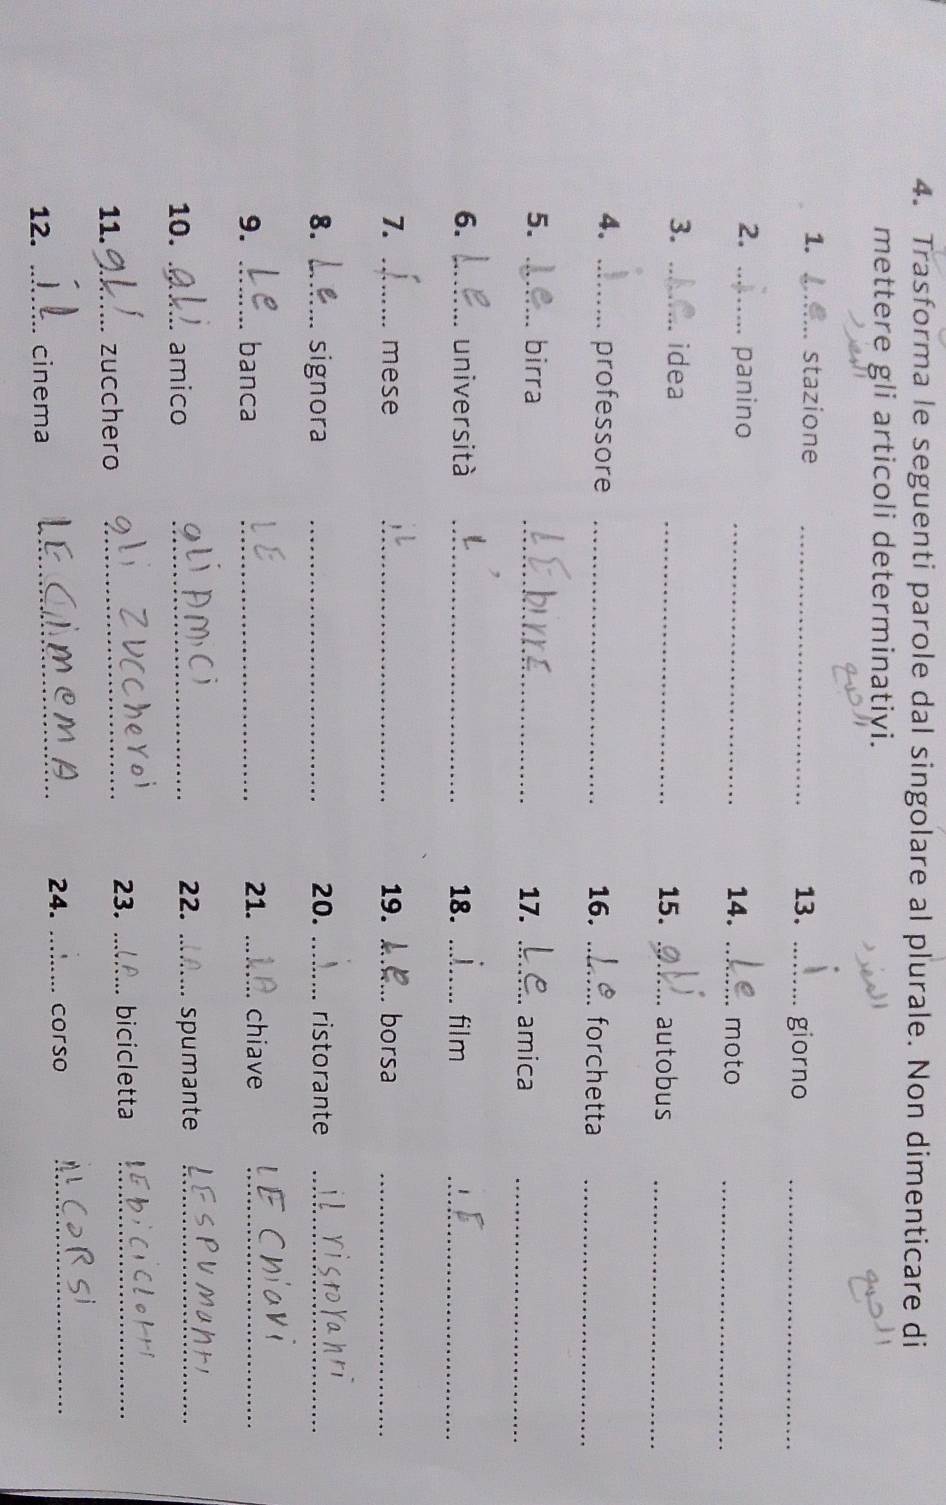 4. Trasforma le seguenti parole dal singolare al plurale. Non dimenticare di
mettere gli articoli determinativi.
المفرد الجمع المفرد الجمع
1. Le stazione
2. i panino
3. Le idea
4. i professore
5. le birra LE birrE
6. Le università L'
7. i mese il
8. Le signora
9. Le banca LE
10. gli amico gli AMiCi
11. gli zucchero gli zuccheroi
12. il cinema LE CinemA
13. i giorno
14. Le moto
15. gli autobus
16. Le forchetta
17. Le amica
18. i film
19. Le borsa
20. i ristorante il ristoranti
21. lA chiave LE Chiavi
22. lA spumante LE SPUManti
23. lA bicicletta lE biciclotti
24. i corso il CoRsi